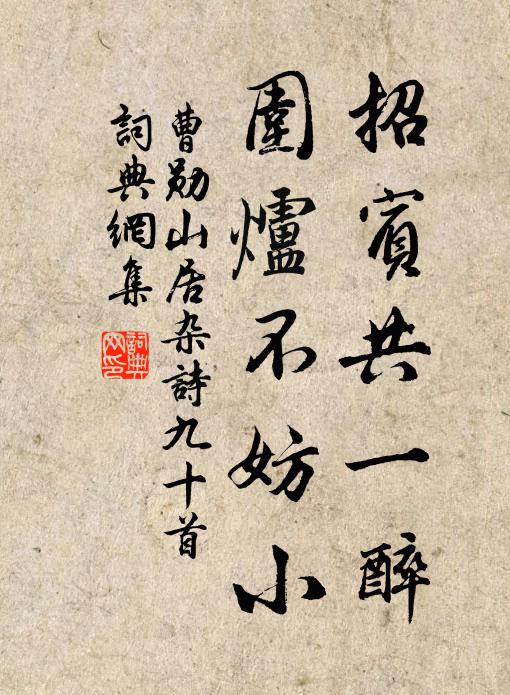 招賓共一醉
圍爐不妨小
曹勛山居杂詩九十首
詞典網集
詞典网印